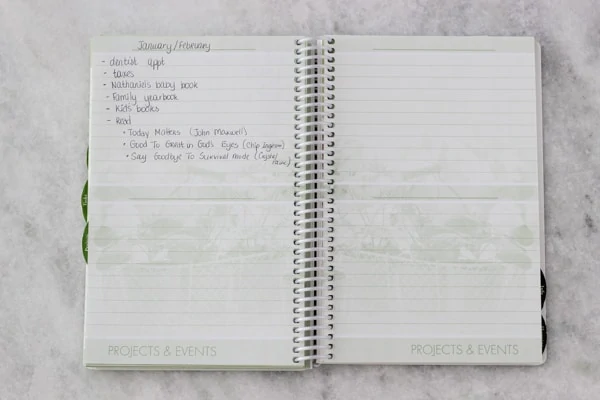 January/February
- dentist appt
- taxes
- Nathaniel's baby book
- Family yearbook
- Kid's books
- Read
• Today Matters (John Maxwell)
• Good To Great in God's Eyes (Chip Ingram)
• Say Goodbye To Survival Mode (Crystal Paine)
PROJECTS & EVENTS
PROJECTS & EVENTS